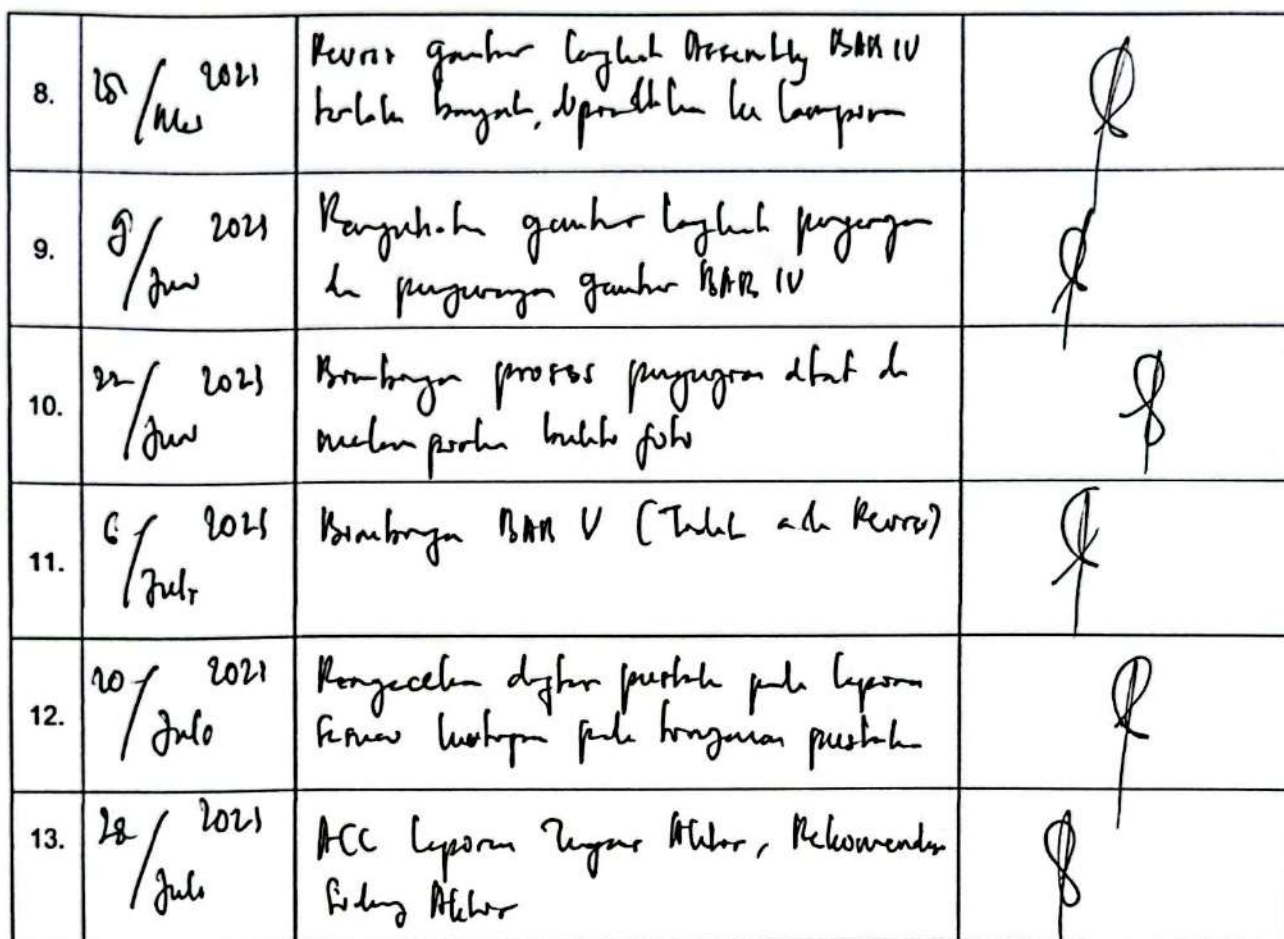 8.
25 / Mei 2023
Revisi gambar langkah Assembly BAB IV
terlalu banyak, dipindahkan ke lampiran
9.
9 / Juni 2023
gambar langkah pengerjaan
dan pengurangan gambar BAB IV
10.
22 / Juni 2023
Bimbingan proses pengujian alat dan
melampirkan bukti foto
11.
6 / Juli 2023
Bimbingan BAB V (Tidak ada Revisi)
12.
20 / Juli 2023
Pengecekan daftar pustaka pada laporan
sesuai kutipan pada tinjauan pustaka
13.
28 / Juli 2023
ACC Laporan Tugas Akhir, Rekomendasi
Sidang Akhir